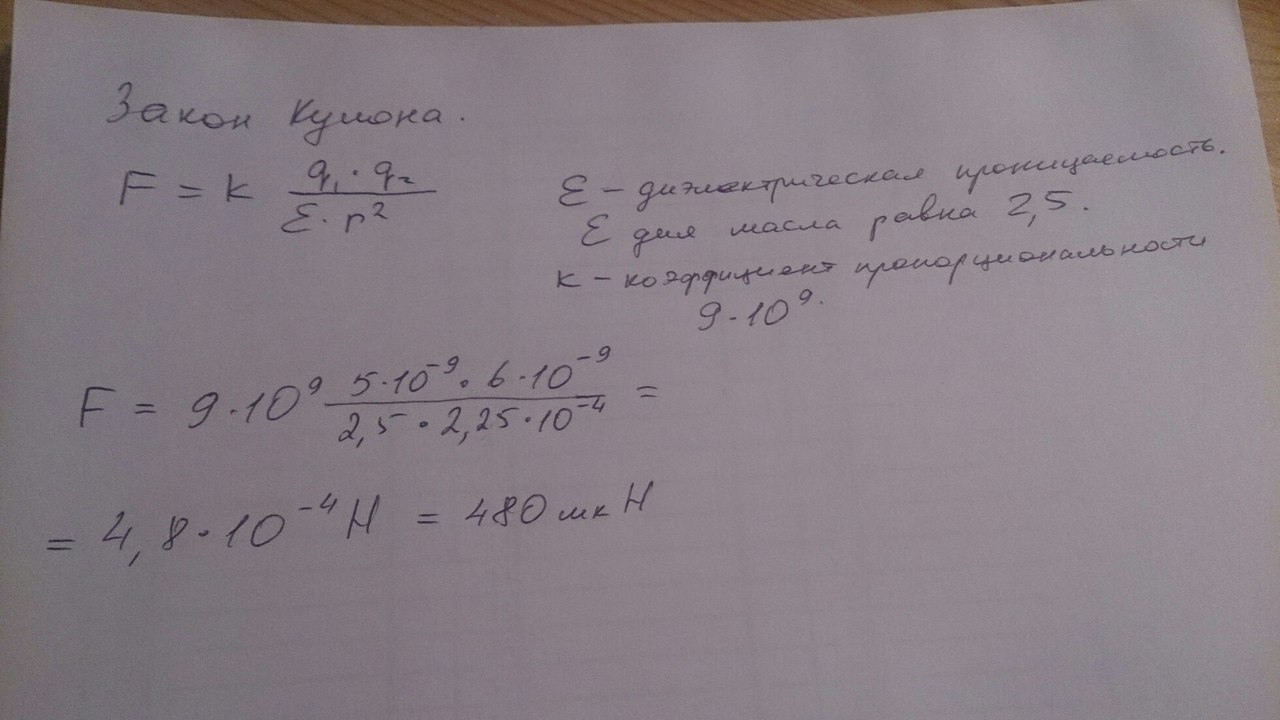 Закон Кулона.
F = k q₁ · q₂ / ε · r²
ε – диэлектрическая проницаемость.
ε для масла равна 2,5.
к – коэффициент пропорциональности
9 · 10⁹.
F = 9 · 10⁹ 5 · 10⁻⁹ · 6 · 10⁻⁹ / 2,5 · 2,25 · 10⁻⁴ =
= 4,8 · 10⁻⁴ Н = 480 мкН